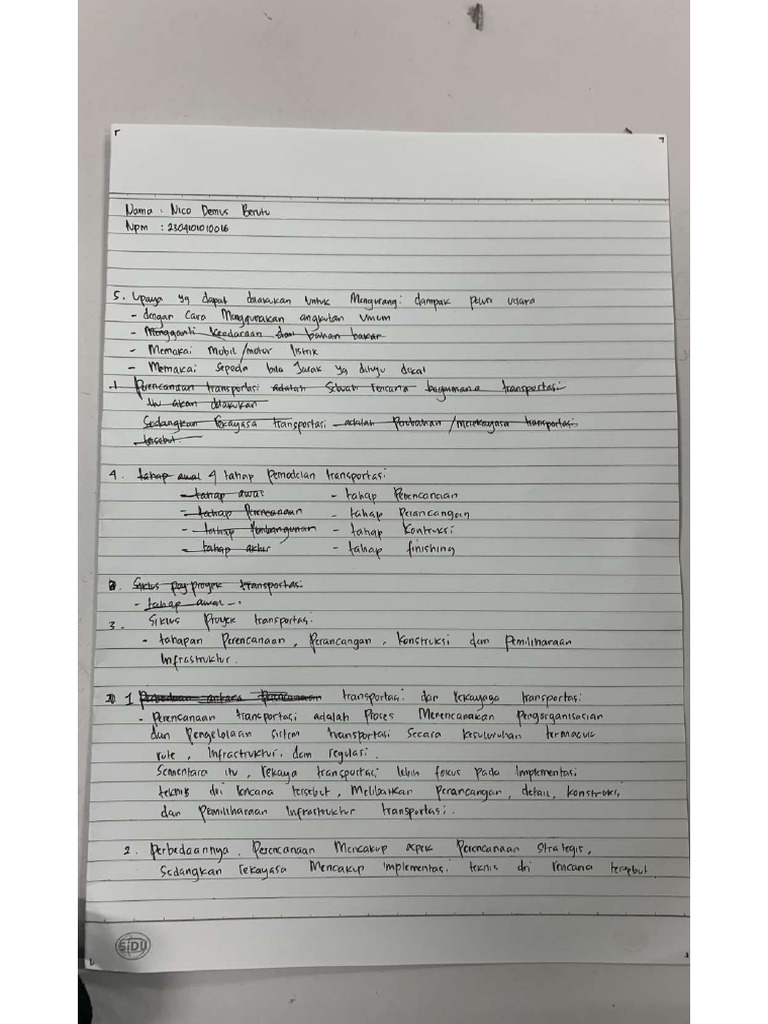 Nama : Nico Demus Berutu
Npm : 2304101010016
5. Upaya yg dapat dilakukan untuk Mengurangi dampak polusi udara
- dengan Cara Menggunakan angkutan umum
- Mengganti Kendaraan dari bahan bakar
- Memakai Mobil/motor listrik
- Memakai Sepeda bila Jarak yg dituju dekat
1 Perencanaan transportasi adalah Sebuah rencana bagaimana transportasi
itu akan dilakukan
Sedangkan rekayasa transportasi adalah Perubahan/merekayasa transportasi
tersebut.
4. tahap awal 4 tahap Pemodelan transportasi
- tahap awal - tahap Perencanaan
- tahap Perencanaan - tahap Perancangan
- tahap Pembangunan - tahap Kontruksi
- tahap akhir - tahap finishing
3. Siklus proyek transportasi
- tahap awal -
3. Siklus Proyek transportasi
- tahapan Perencanaan, Perancangan, Konstruksi dan Pemiliharaan
Infrastruktur.
1 Perbedaan antara Perencanaan transportasi dan rekayasa transportasi
- Perencanaan transportasi adalah Proses Merencanakan Pengorganisasian
dan Pengelolaan sistem transportasi Secara kesuluruhan termasuk
rute, Infrastruktur, dan regulasi.
Sementara itu, rekaya transportasi lebih fokus pada Implementasi
teknis dri rencana tersebut, Melibatkan Perancangan, detail, konstruksi,
dan Pemiliharaan Infrastruktur transportasi.
2. Perbedaannya, Perencanaan Mencakup aspek Perencanaan Strategis,
Sedangkan rekayasa Mencakup implementasi teknis dri rencana tersebut
SiDU